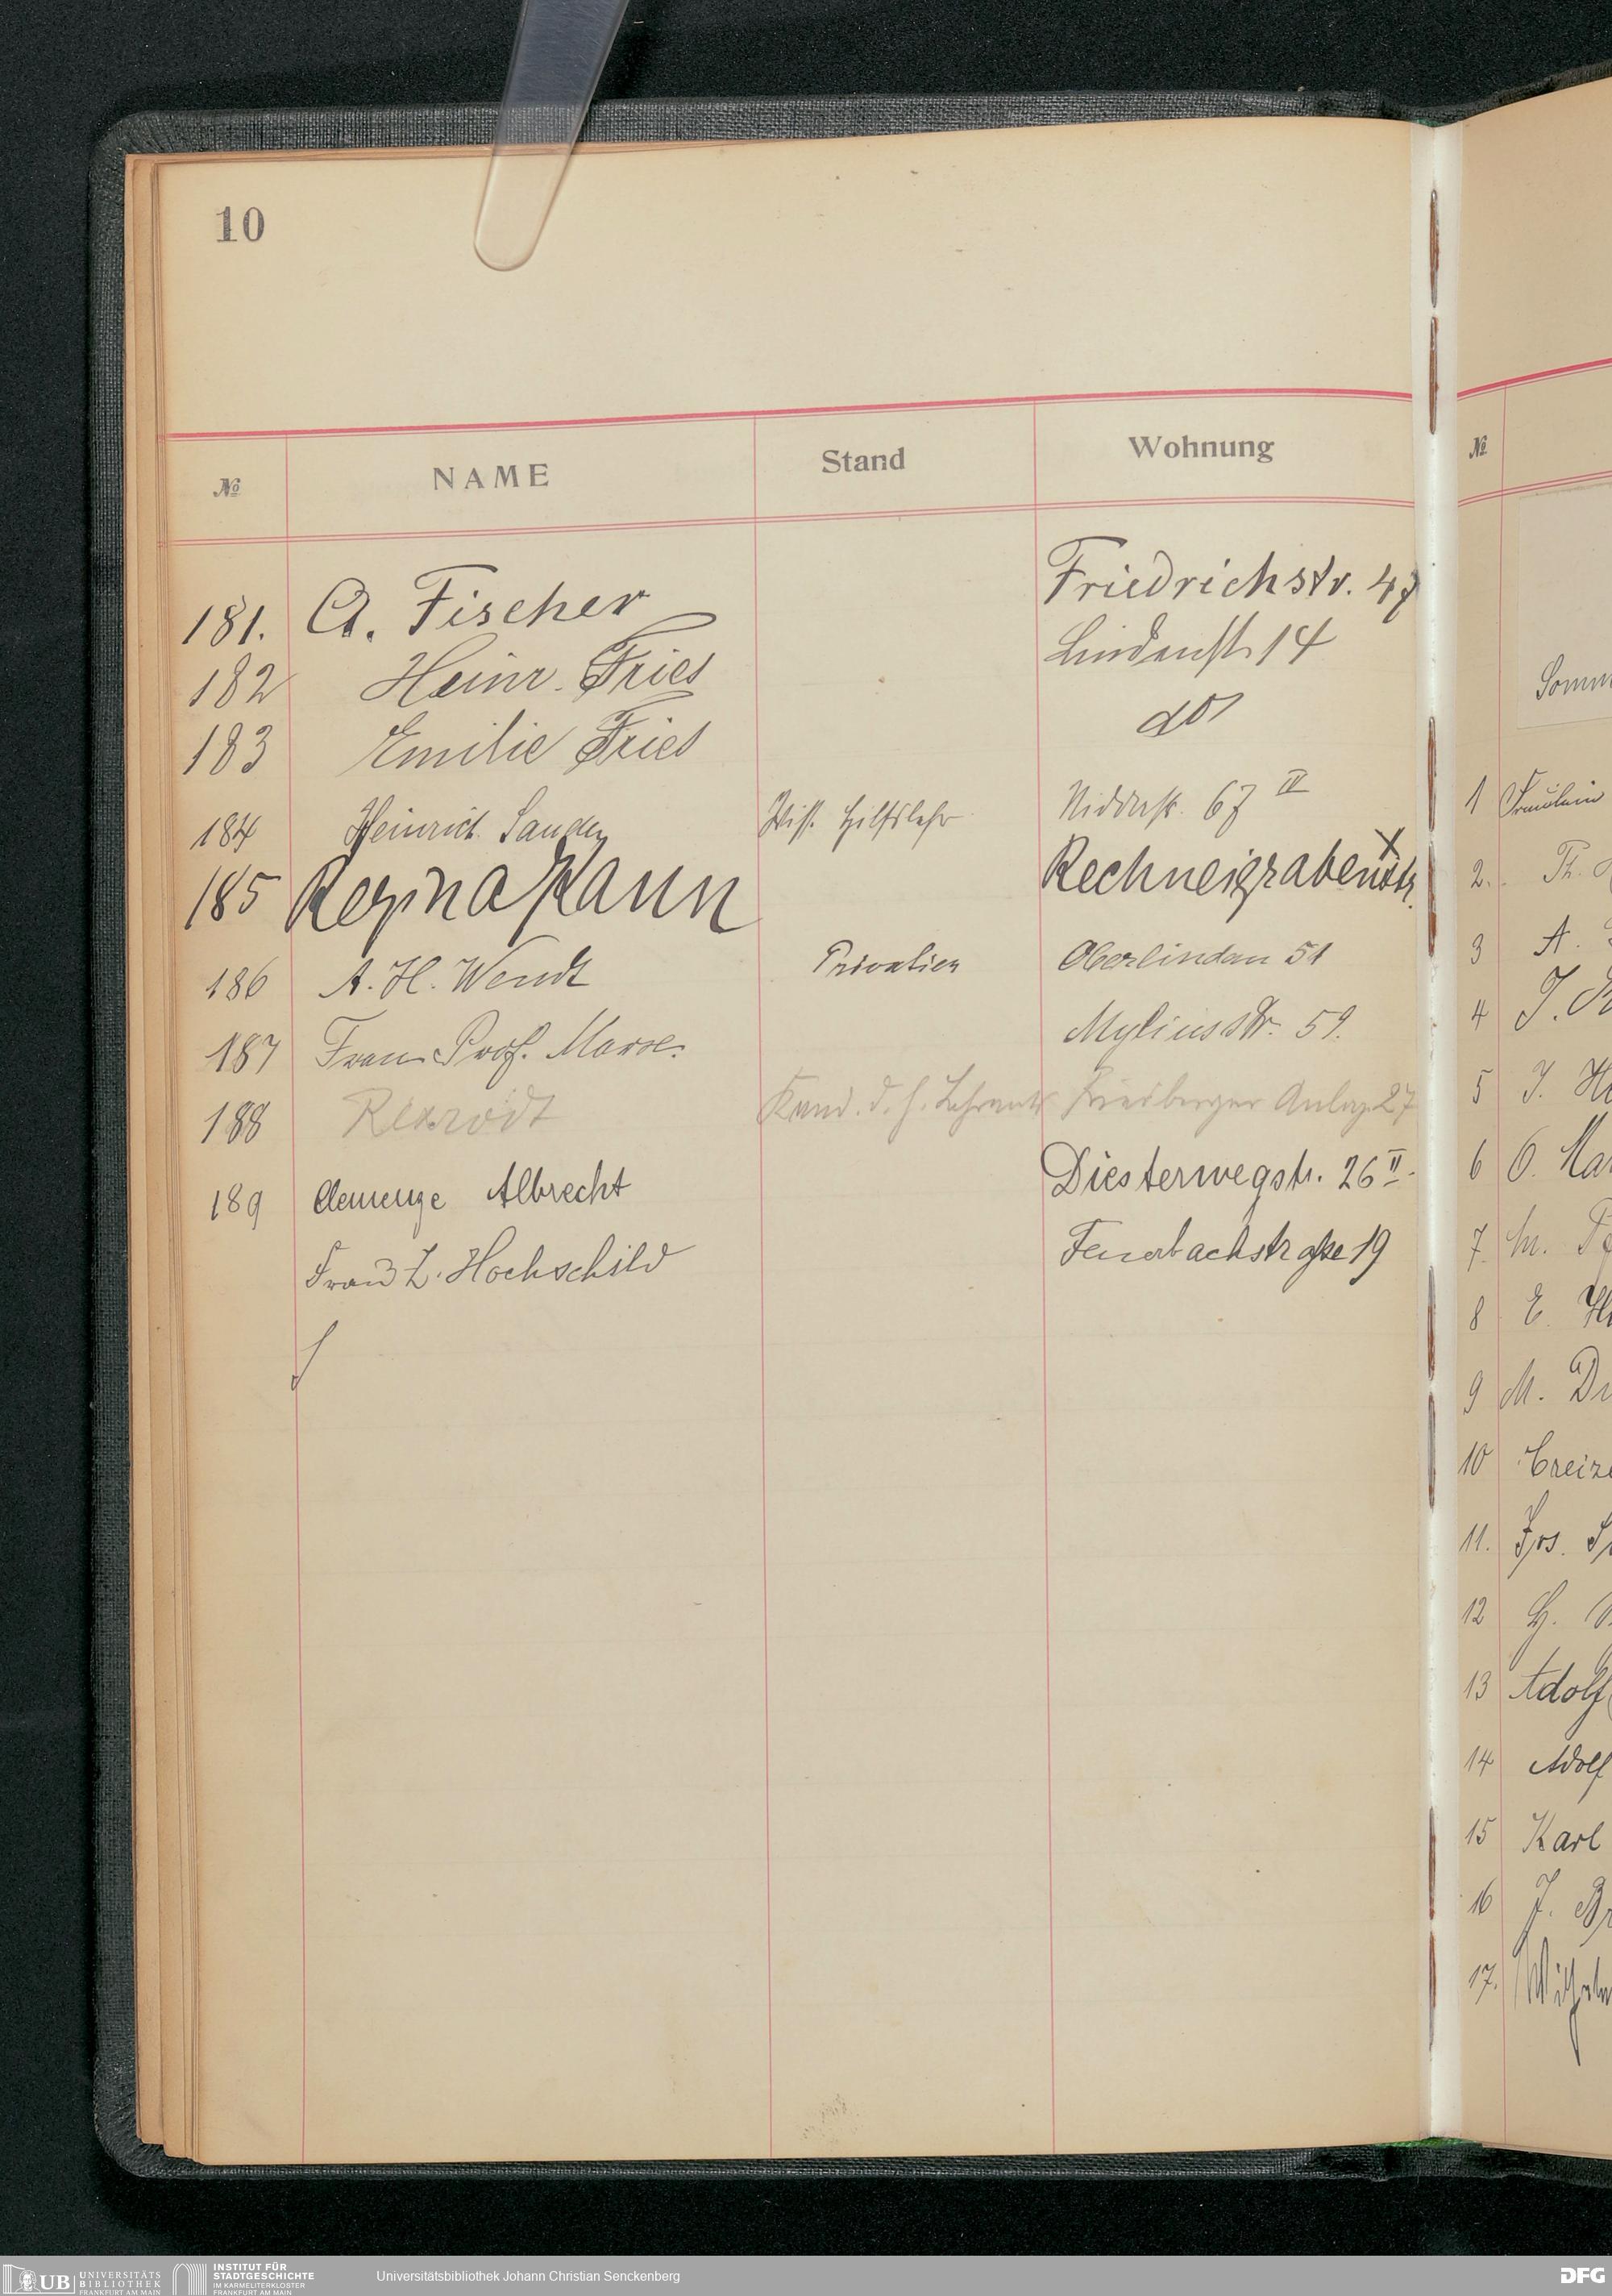 10
№ NAME Stand Wohnung
181. A. Fischer Friedrichstr. 47
182 Heinr. Fries Lindenstr. 14
183 Emilie Fries do
184 Heinrich Sanden Wiss. Hilfslehr Niddastr. 67 IV
185 Regina Kann Rechneigrabenstr.
186 A. H. Wendt Privatier Oberlindau 51
187 Frau Prof. Marx. Myliusstr. 59.
188 Rexrodt Kand. d. h. Lehramts Friedberger Anlage 27
189 Clemenze Albrecht Diesterwegstr. 26 II.
Frau Z. Hochschild Feuerbachstraße 19
№
Somm
1 Fräulein
2. Th.
3 A.
4 J.
5 J. H
6 O. Mar
7. M.
8 E. H
9 M. Dr
10 Creize
11. Jos. S
12 H.
13 Adolf
14 Adolf
15 Karl
16 J. Br
17. Wilhelm
UB UNIVERSITÄTS BIBLIOTHEK FRANKFURT AM MAIN
INSTITUT FÜR STADTGESCHICHTE IM KARMELITERKLOSTER FRANKFURT AM MAIN
Universitätsbibliothek Johann Christian Senckenberg
DFG